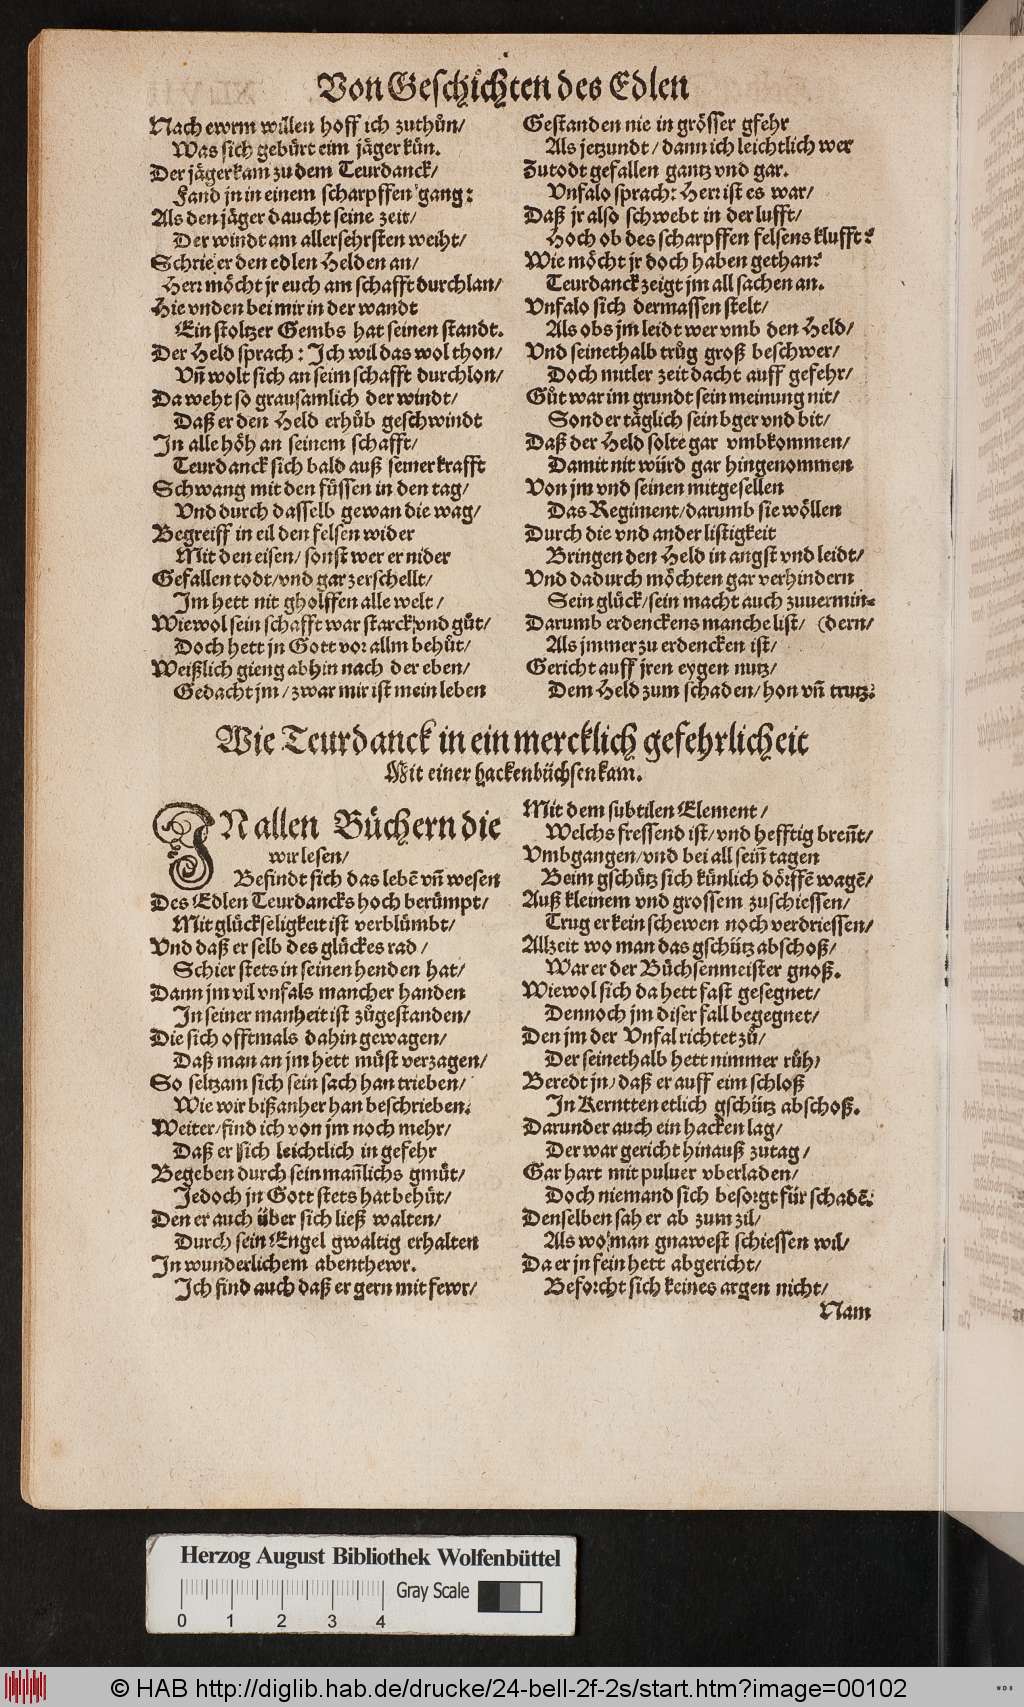 Von Geschichten des Edlen
Nach ewrm willen hoff ich zuthůn/
Was sich gebürt eim jäger kün.
Der jäger kam zu dem Teurdanck/
Fand jn in einem scharpffen gang:
Als den jäger daucht seine zeit/
Der windt am allersehrsten weiht/
Schrie er den edlen Helden an/
Herr möcht jr euch am schafft durchlan/
Hie vnden bei mir in der wandt
Ein stoltzer Gembs hat seinen standt.
Der Held sprach: Ich wil das wol thon/
Vñ wolt sich an seim schafft durchlon/
Da weht so grausamlich der windt/
Daß er den Held erhůb geschwindt
In alle höh an seinem schafft/
Teurdanck sich bald auß seiner krafft
Schwang mit den füssen in den tag/
Vnd durch dasselb gewan die wag/
Begreiff in eil den felsen wider
Mit den eisen/ sonst wer er nider
Gefallen todt/ vnd gar zerschellt/
Im hett nit gholffen alle welt/
Wiewol sein schafft war starck/ vnd gůt/
Doch hett jn Gott vor allm behůt/
Weißlich gieng abhin nach der eben/
Gedacht jm/ zwar mir ist mein leben
Gestanden nie in grösser gfehr
Als jetzundt/ dann ich leichtlich wer
Zutodt gefallen gantz vnd gar.
Vnfalo sprach: Herr ist es war/
Daß jr also schwebt in der lufft/
Hoch ob des scharpffen felsens klufft?
Wie möcht jr doch haben gethan?
Teurdanck zeigt jm all sachen an.
Vnfalo sich dermassen stelt/
Als obs jm leidt wer vmb den Held/
Vnd seinethalb trůg groß beschwer/
Doch mitler zeit dacht auff gefehr/
Gůt war im grundt sein meinung nit/
Sonder täglich sein bger vnd bit/
Daß der Held solte gar vmbkommen/
Damit nit würd gar hingenommen
Von jm vnd seinen mitgesellen
Das Regiment/ darumb sie wöllen
Durch die vnd ander listigkeit
Bringen den Held in angst vnd leidt/
Vnd dadurch möchten gar verhindern
Sein glück/ sein macht auch zuvermin-
Darumb erdenckens manche list/ (dern/
Als jmmer zu erdencken ist/
Gericht auff jren eygen nutz/
Dem Held zum schaden/ hon vñ trutz.
Wie Teurdanck in ein mercklich gefehrlicheit
Mit einer hackenbüchsen kam.
IN allen Büchern die
wir lesen/
Befindt sich das lebẽ vñ wesen
Des Edlen Teurdancks hoch berümpt/
Mit glückseligkeit ist verblümbt/
Vnd daß er selb des glückes rad/
Schier stets in seinen henden hat/
Dann jm vil vnfals mancher handen
In seiner manheit ist zůgestanden/
Die sich offtmals dahin gewagen/
Daß man an jm hett můst verzagen/
So seltzam sich sein sach han trieben/
Wie wir bißanher han beschrieben.
Weiter/ find ich von jm noch mehr/
Daß er sich leichtlich in gefehr
Begeben durch sein mañlichs gmüt/
Jedoch jn Gott stets hat behüt/
Den er auch über sich ließ walten/
Durch sein Engel gwaltig erhalten
In wunderlichem abenthewr.
Ich find auch daß er gern mit fewr/
Mit dem subtilen Element/
Welchs fressend ist/ vnd hefftig breñt/
Vmbgangen/ vnd bei all seiñ tagen
Beim gschütz sich künlich dörffẽ wagẽ/
Auß kleinem vnd grossem zuschiessen/
Trug er kein schewen noch verdriessen/
Allzeit wo man das gschütz abschoß/
War er der Büchsenmeister gnoß.
Wiewol sich da hett fast gesegnet/
Dennoch jm diser fall begegnet/
Den jm der Vnfal richtet zů/
Der seinethalb hett nimmer růh/
Beredt jn/ daß er auff eim schloß
In Kerntten etlich gschütz abschoß.
Darunder auch ein hacken lag/
Der war gericht hinauß zutag/
Gar hart mit puluer vberladen/
Doch niemand sich besorgt für schadẽ.
Denselben sah er ab zum zil/
Als wo man gnawest schiessen wil/
Da er jn fein hett abgericht/
Beforcht sich keines argen nicht/
Nam
Herzog August Bibliothek Wolfenbüttel
Gray Scale
0 1 2 3 4
© HAB http://diglib.hab.de/drucke/24-bell-2f-2s/start.htm?image=00102